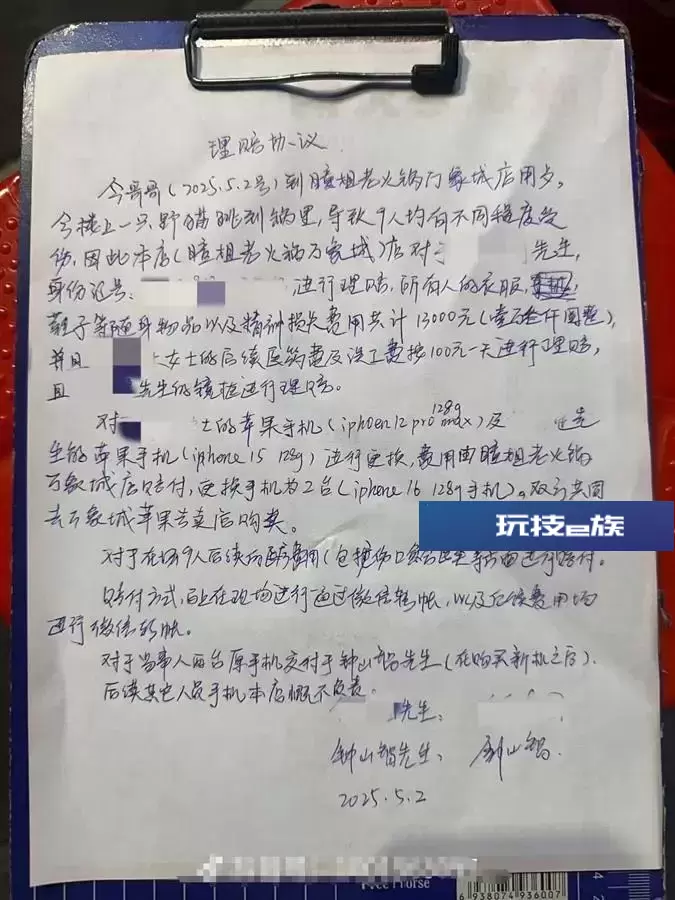 理赔协议
今哥哥(2025.5.2号)到瞳姐老火锅万象城店用歺,
令楼上一只野猫跳到锅里,导致9人均有不同程度受
伤,因此本店(瞳姐老火锅万象城)店对 先生,
身份证号: 进行理赔,所有人的衣服,
鞋子等随身物品以及精神损失费用共计13000元(壹万叁仟圆整),
并且 女士的后续医药费及误工费按100元一天进行理赔,
且 先生的镜框进行理赔。
对 士的苹果手机(iphoen 12 pro max 128g)及 先
生的苹果手机(iphone 15 128g)进行更换,费用由瞳姐老火锅
万象城店赔付,更换手机为2台(iphone 16 128g手机)。双方共同
去万象城苹果专卖店购买。
玩技e族
对于在场9人后续 费用(包括伤口 进行赔付。
赔付方式, 在现场进行通过微信转帐,以及后续费用均
进行微信转帐。
对于当事人两台原手机交付于钟山智先生(在购买新机之后).
后续其它人员手机本店概不负责。
先生:
钟山智先生: 钟山智.
2025.5.2
Free Horse
6 938074 936007